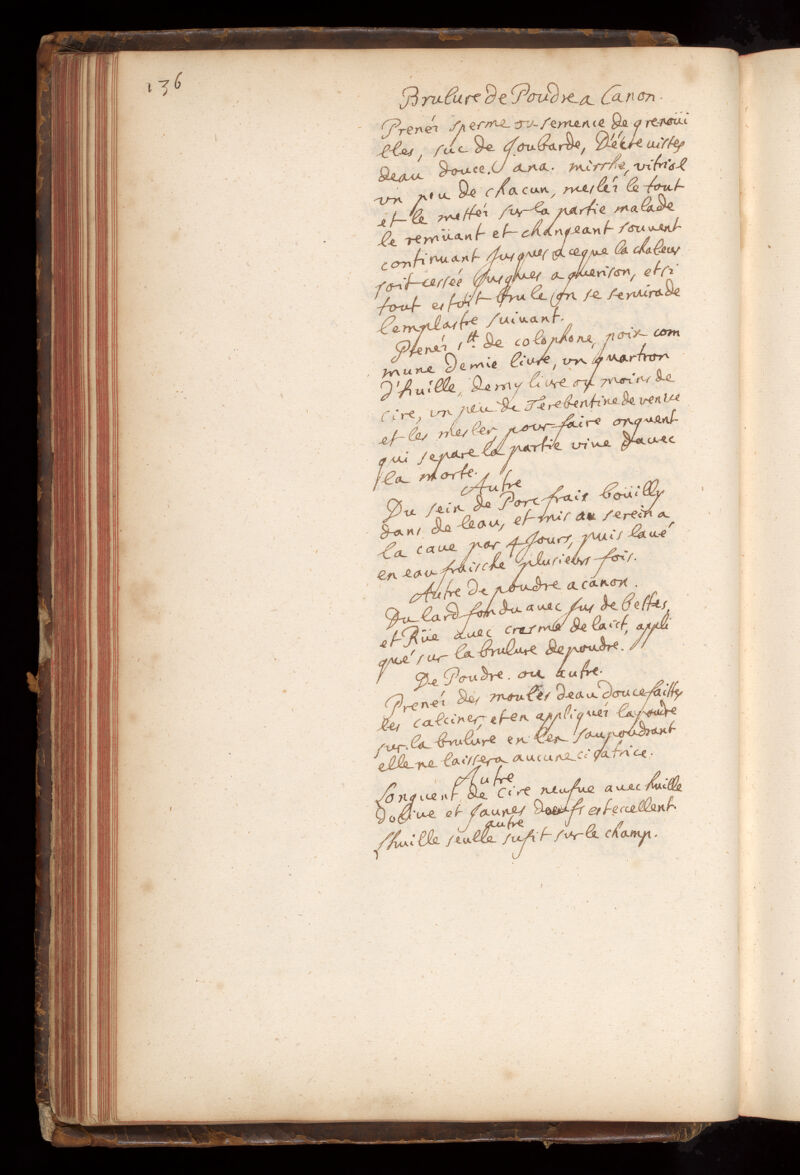 136
Brulure de Poudre a Canon.
Prenéz sperme ou semence de grenoüi
lles, suc de Joubarbe, décreuisses
deau douce. ana. mirrhe, vitriol
vn peu de chacun, mesléz le tout
et le mettéz sur la partie malade
le remüant et changeant souuent
continuant jusques a ceque la chaleur
soit cessée jusques a guerison, et si
tout estoit brule on se seruira de
lemplastre suiuant.
Prenéz 1 tt. de colophone, poix com
mune demie liure, vn quartron
d'huille, demy liure ou moins de
cire, vn peu de Térebentine de venise
et les mesler pour faire onguent
qui separe la partie viue dauec
la morte.
Autre
Du sein de Porc frais boüilly
dans de leau, et mis au serein a
la caue par 4 Jours, puis laué
en eau fraische plusieurs fois.
Autre de poudre a canon.
Du lard fondu auec jus de bettes,
et Rüe auec cresme de laict, appli
qué sur la brulure de poudre.
De Poudre. ou autre.
Prenéz des moulés deau douce faittes
les calciner et en appliquéz la poudre
sur la brulure en les saupoudrant
elle ne laissera aucune cicatrice.
Autre
Longuent de Cire neufue auec huille
doliue et jaunes doeufs est excellent.
autre
Lhuille seulle sufit sur le champ.